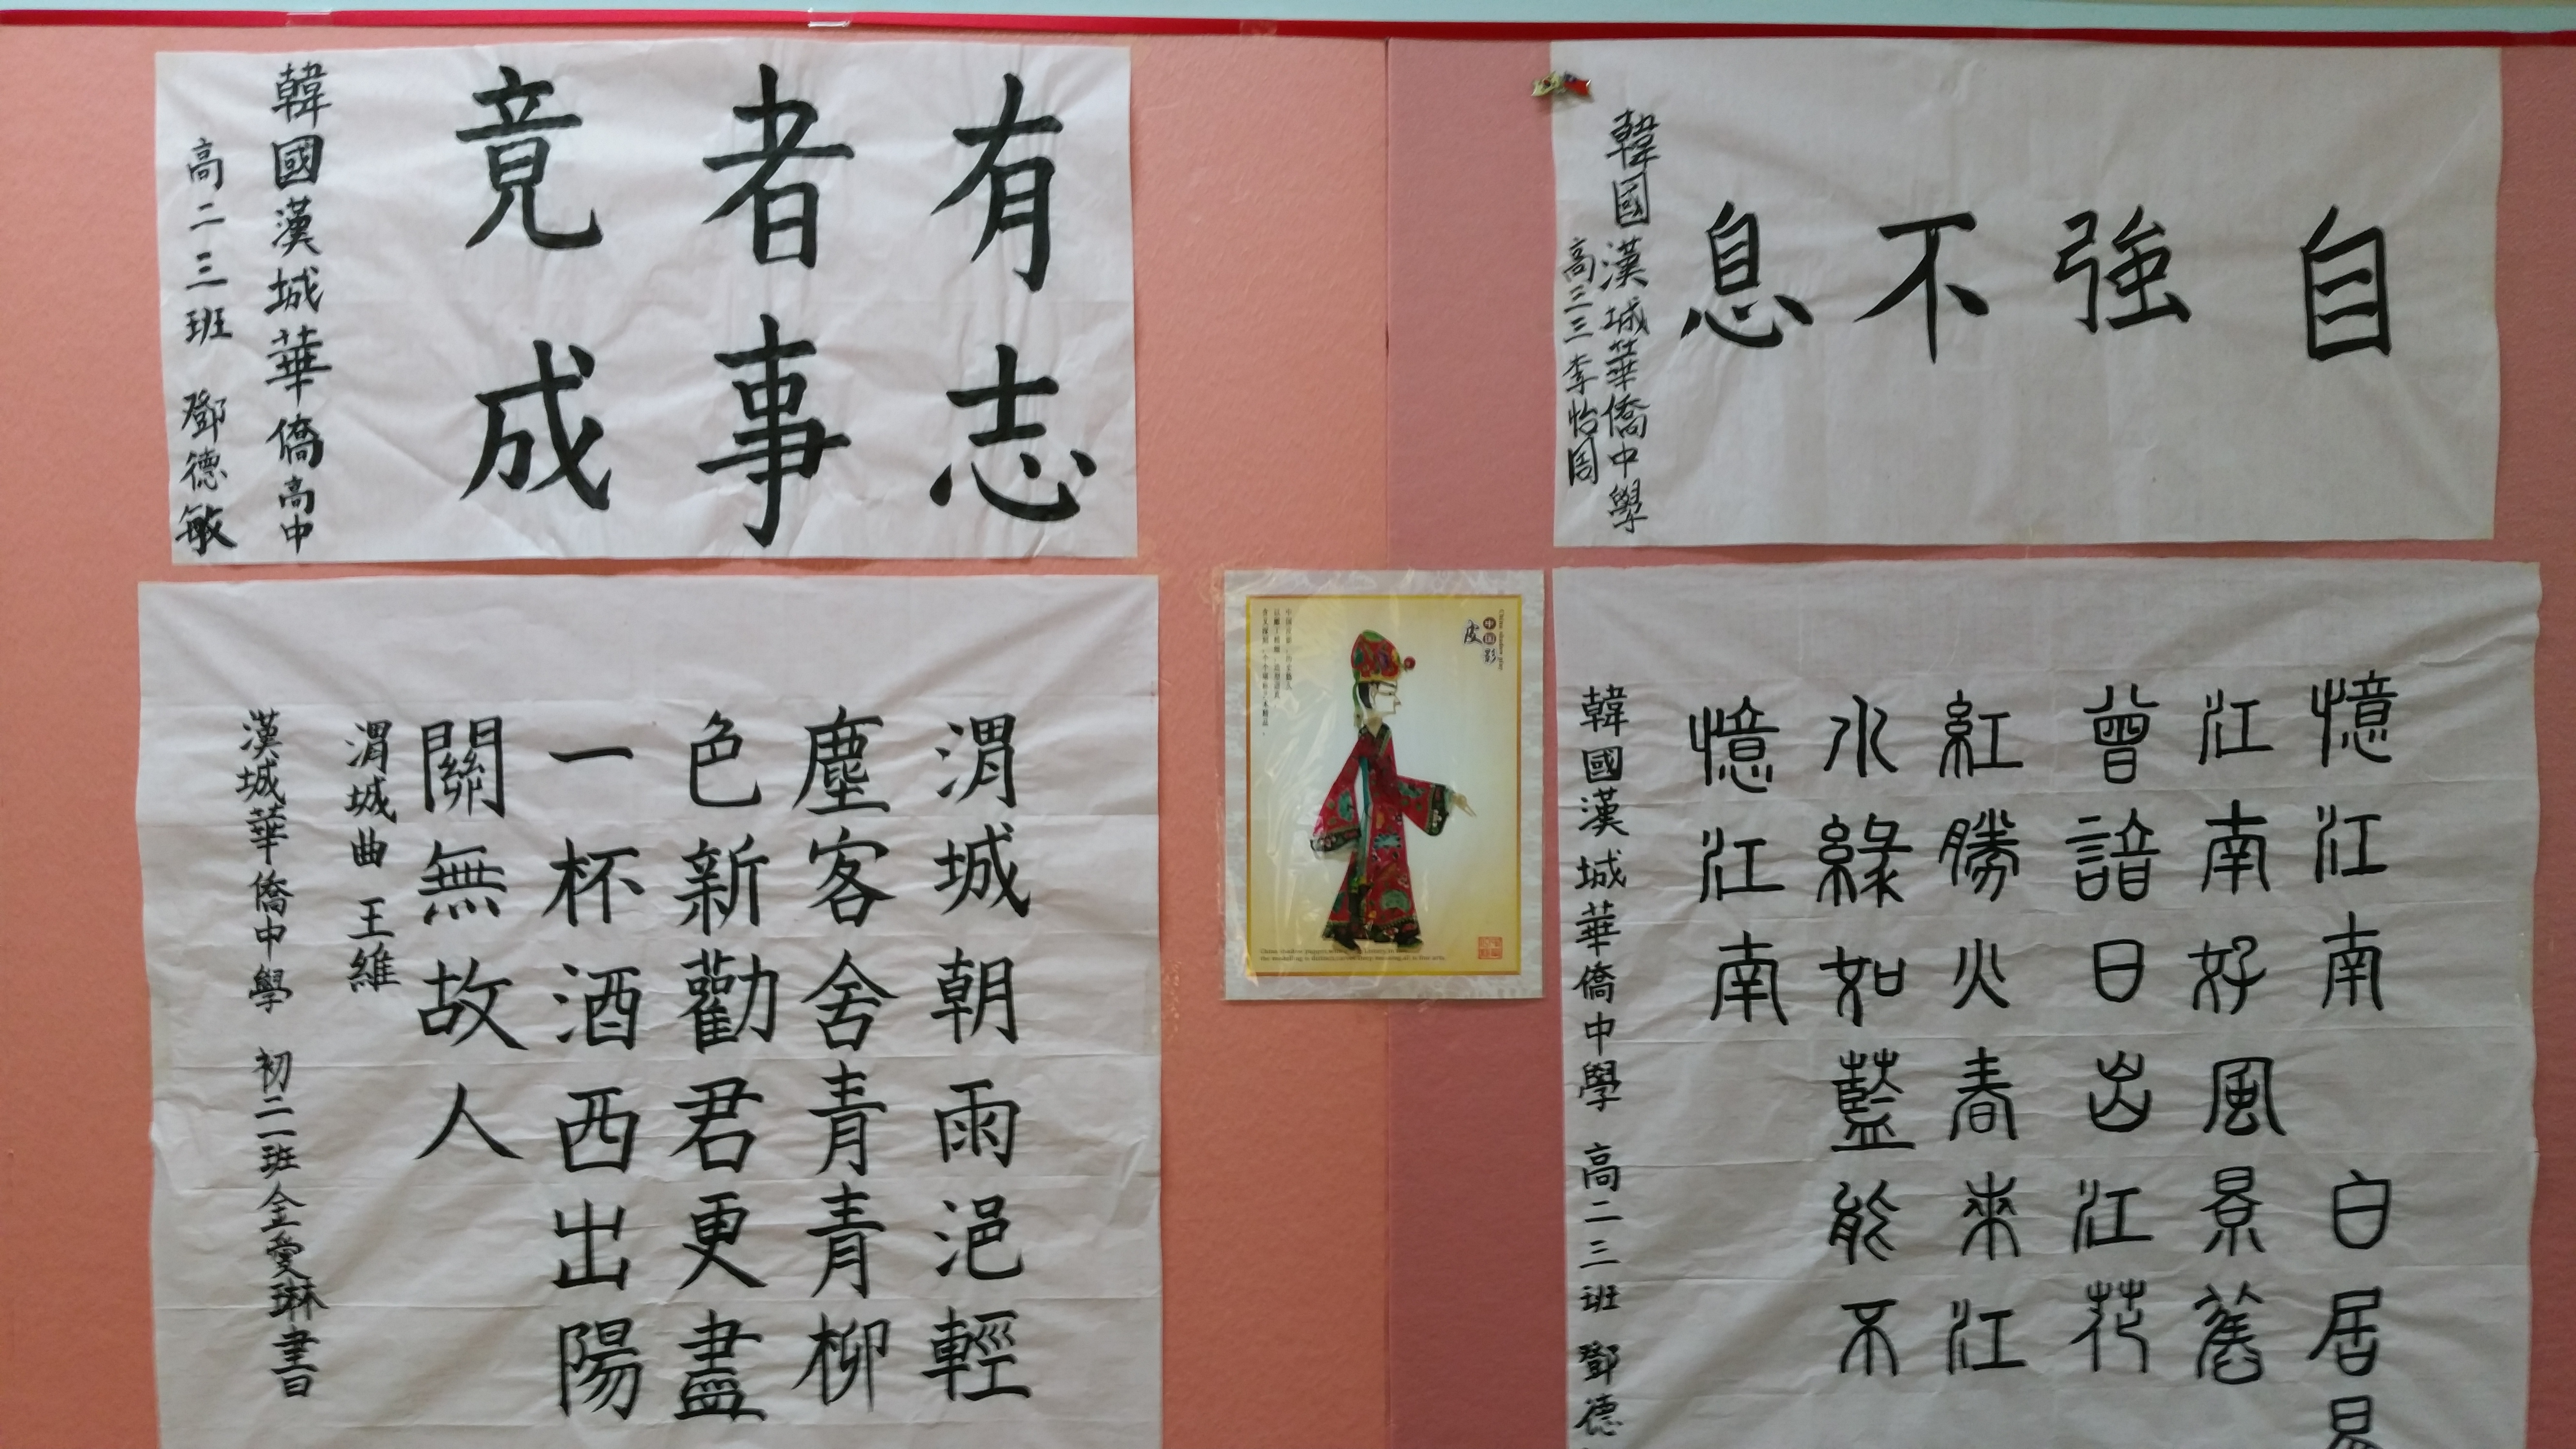 有志
者事
竟成
韓國漢城華僑高中
高二三班 鄧德敏
自強不息
韓國漢城華僑中學
高三三李怡周
渭城朝雨浥輕
塵客舍青青柳
色新勸君更盡
一杯酒西出陽
關無故人
渭城曲 王維
漢城華僑中學 初二二班金愛琳書
中国
皮影
China shadow play
憶江南 白居易
江南好風景舊
曾諳日出江花
紅勝火春來江
水綠如藍能不
憶江南
韓國漢城華僑中學 高二三班 鄧德